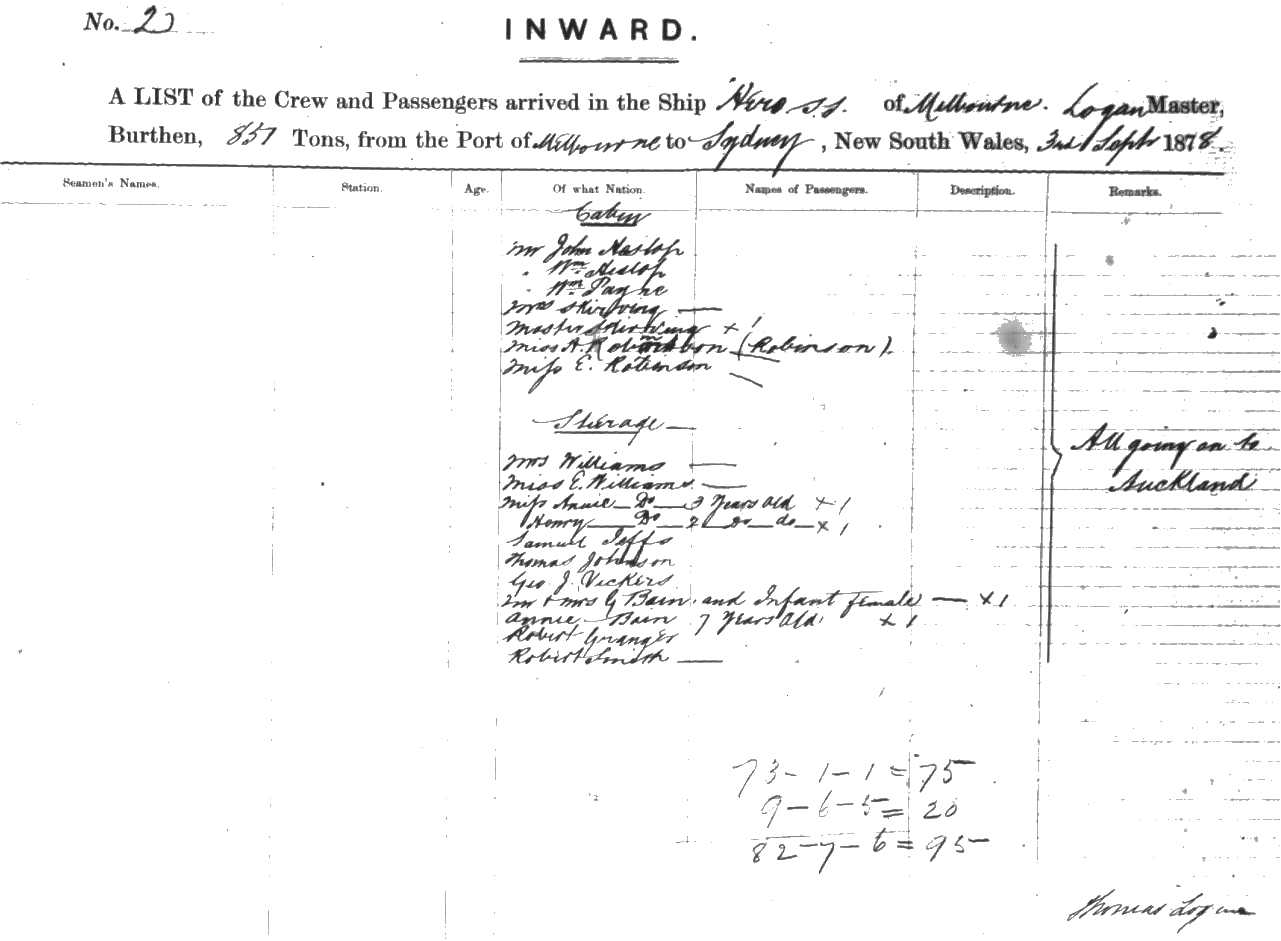 No. 2
INWARD.
A LIST of the Crew and Passengers arrived in the Ship Hero s.s. of Melbourne. Logan Master,
Burthen, 857 Tons, from the Port of Melbourne to Sydney, New South Wales, 3rd Septr 1878.
Seamen's Names. Station. Age. Of what Nation. Names of Passengers. Description. Remarks.
Cabin
Mr John Heslop
" Wm. Heslop
" Wm. Payne
Mrs Skirving —
Master Skirving x 1
Miss A. (Robinson).
Miss E. Robinson —
Steerage —
Mrs Williams —
Miss E. Williams —
Miss Annie — Do — 3 Years Old x 1
Henry — Do — 2 Do — do — x 1
Samuel Jeffs
Thomas Johnson
Geo J. Vickers
Mr & Mrs G Bain and Infant female — x 1
Annie Bain 7 Years Old x 1
Robert Granger
Robert Smith —
All going on to
Auckland
73 - 1 - 1 = 75
9 - 6 - 5 = 20
82 - 7 - 6 = 95
Thomas Logan